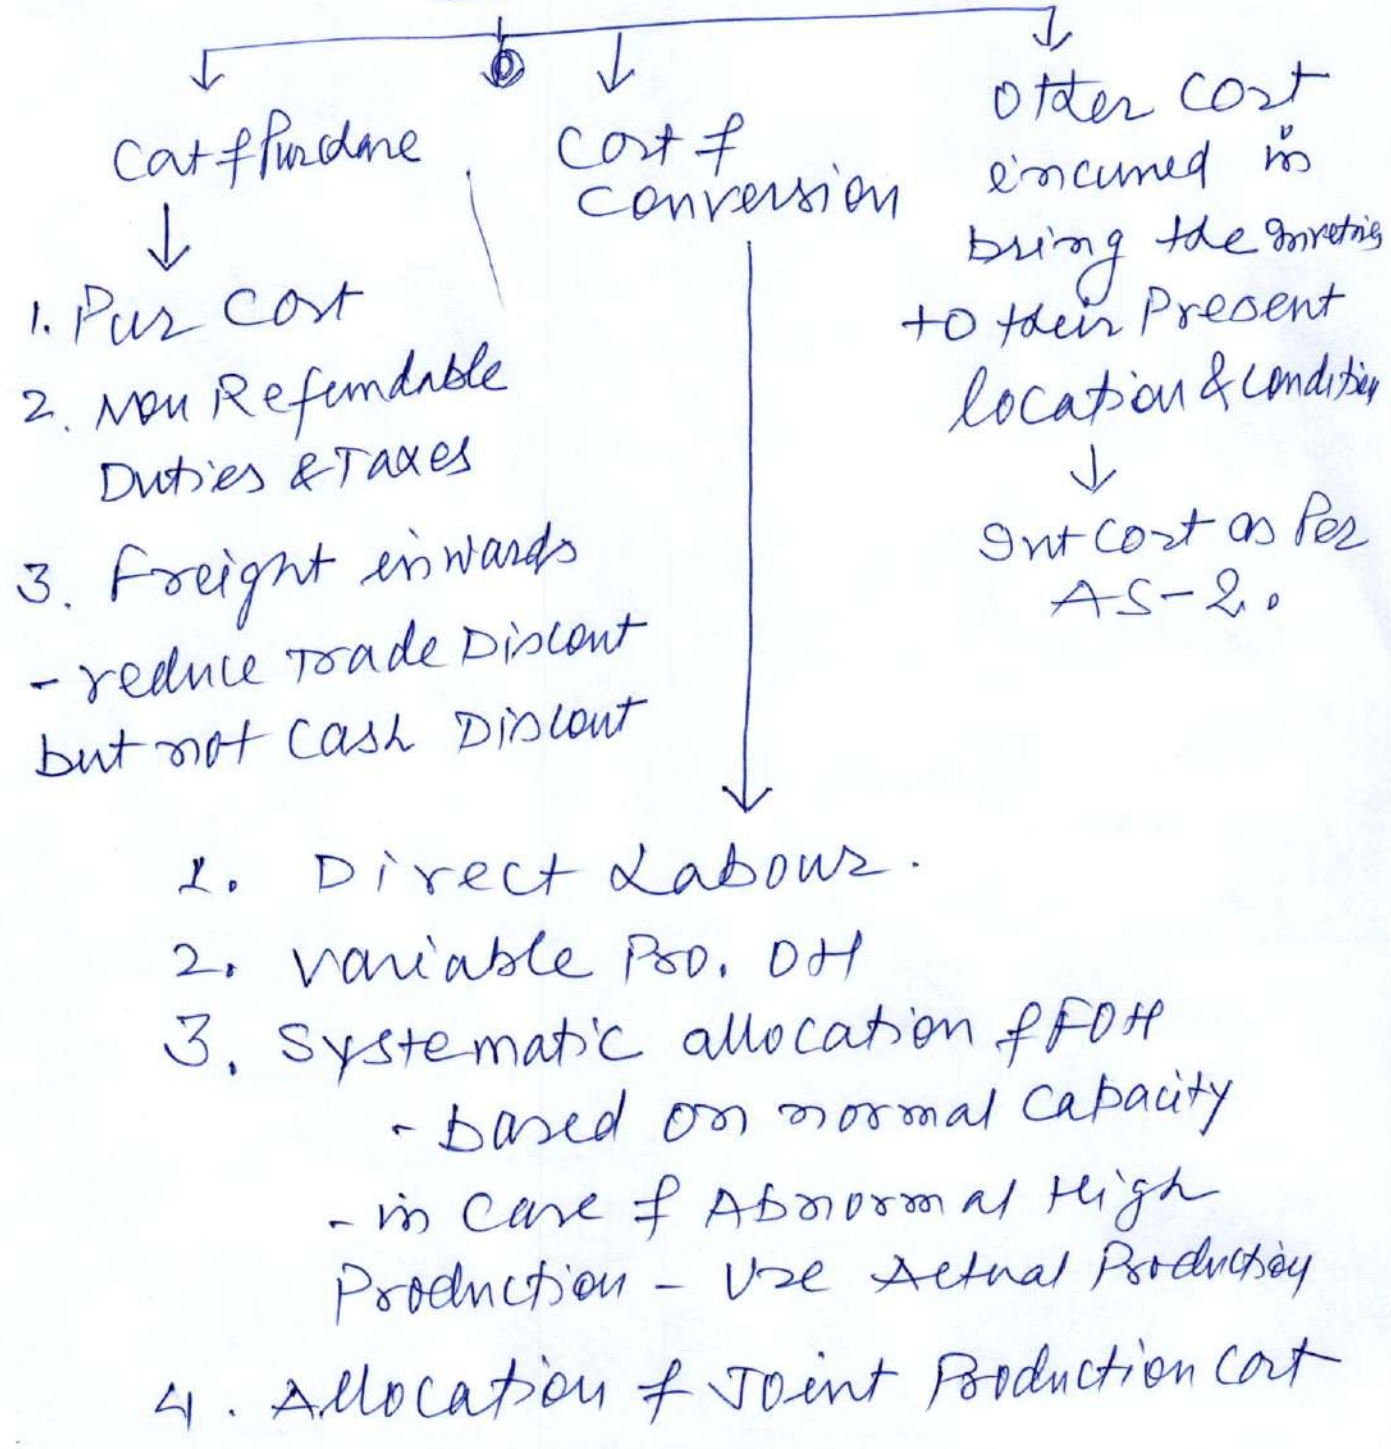 Cost of Purchase
1. Pur Cost
2. Non Refundable
Duties & Taxes
3. Freight inwards
- reduce Trade Discout
but not Cash Discout
Cost of
Conversion
Other Cost
incurred in
bring the
to their Present
location & condition
Int Cost as Per
AS-2.
1. Direct Labour.
2. Variable Pro. OH
3. Systematic allocation of FOH
- based on normal Capacity
- in Case of Abnormal High
Production - Use Actual Production
4. Allocation of Joint Production Cost